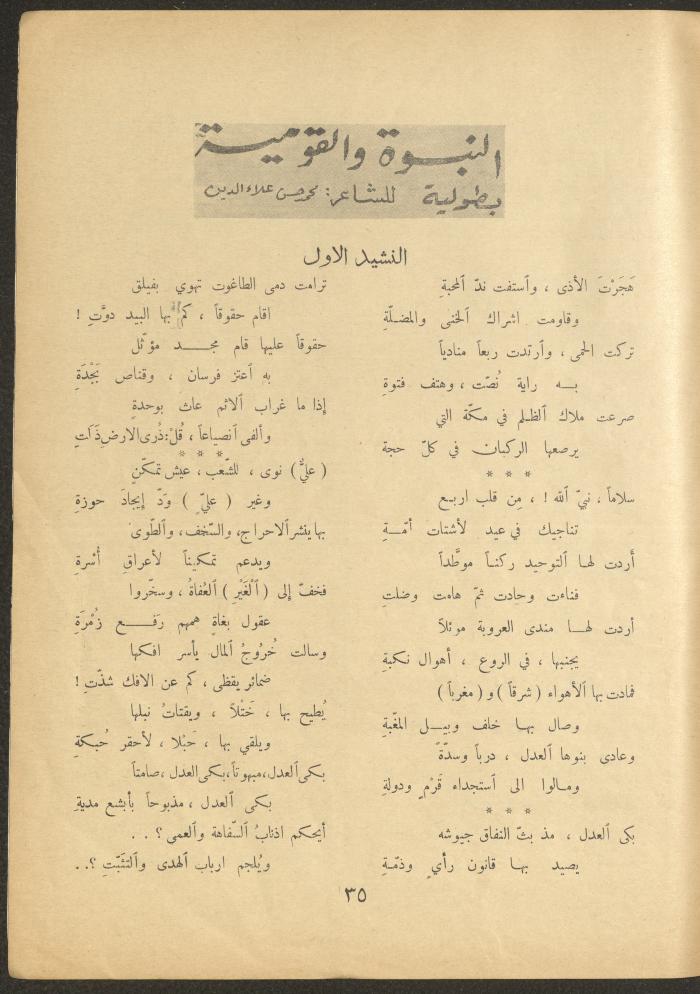 النبوة والقومية
بطولية للشاعر: محمد حسن علاء الدين
النشيد الاول
هَجَرْتَ الأذى ، وٱستفت ندّ ٱلمحبةِ
وقاومت اشراك ٱلخنى والمضلّةِ
تركت الحمى ، وٱرتدت ربعاً منادياً
بـه راية نُصّت ، وهتف فتوةِ
صرعت ملاك ٱلظلم في مكّة التي
يرصعها الركبان في كلّ حجة
* * *
سلاماً ، نبيّ ٱلله ! ، مِن قلب اربع
تناجيك في عيد لأشتات أمّـةِ
أردت لها ٱلتوحيد ركناً موطَّداً
فناءت وحادت ثمّ هامت وضلتِ
أردت لهـا مندى العروبة موئلاً
يجنبها ، في الروع ، أهوال نكبةِ
فمادت بها ٱلأهواء ( شرقاً ) و ( مغرباً )
وصال بهـا خلف وبيـل المغّبةِ
وعادى بنوها ٱلعدل ، درباً وسدّةً
ومـالوا الى ٱستجداء قَرْمٍ ودولةِ
* * *
بكى ٱلعدل ، مذ بثّ النفاق جيوشه
يصيد بهـا قانون رأيٍ وذمّـةِ
ترامت دمى الطاغوت تهوي بفيلق
اقام حقوقاً ، كم بها البيد دوَّتِ !
حقوقاً عليها قام مجـد مؤثّل
به ٱعتز فرسان ، وقناص نَجْدَةِ
إذا ما غراب ٱلاثم عاث بوحدةٍ
وألفى ٱنصياعاً ، قُلْ: ذُرى الارض ذَلَّتِ
* * *
( عليٌّ ) نوى ، للشّعب ، عيش تمكّنٍ
وغير ( عليّ ) وَدّ إيجادَ حوزةِ
بها ينشر ٱلاحراج، والسّخف، وٱلطّوى
ويدعم تمكيناً لأعراقِ أُسْرةِ
فخفّ إلى ( ٱلْغَيْرِ ) ٱلعُفاةُ ، وسخّروا
عقول بغاةٍ همهم رَفـع زُمْرَةِ
وسالت خُرُوجُ ٱلمال يأسر افكها
ضمائر يقظى ، كم عن الافك شذّتِ !
يُطيح بها ، خَتْلاً ، ويقتاتُ نبلها
ويلقي بها ، خَبْلا ، لأحقر حُبكةِ
بكى ٱلعدل، مبهوتاً، بكى العدل، صامتاً
بكى ٱلعدل ، مذبوحاً بأبشع مديةِ
أيحكم اذنابُ ٱلسّفاهة وٱلعمى ؟ . .
ويُلجم ارباب ٱلهدى وٱلتثبّتِ ؟..
٣٥